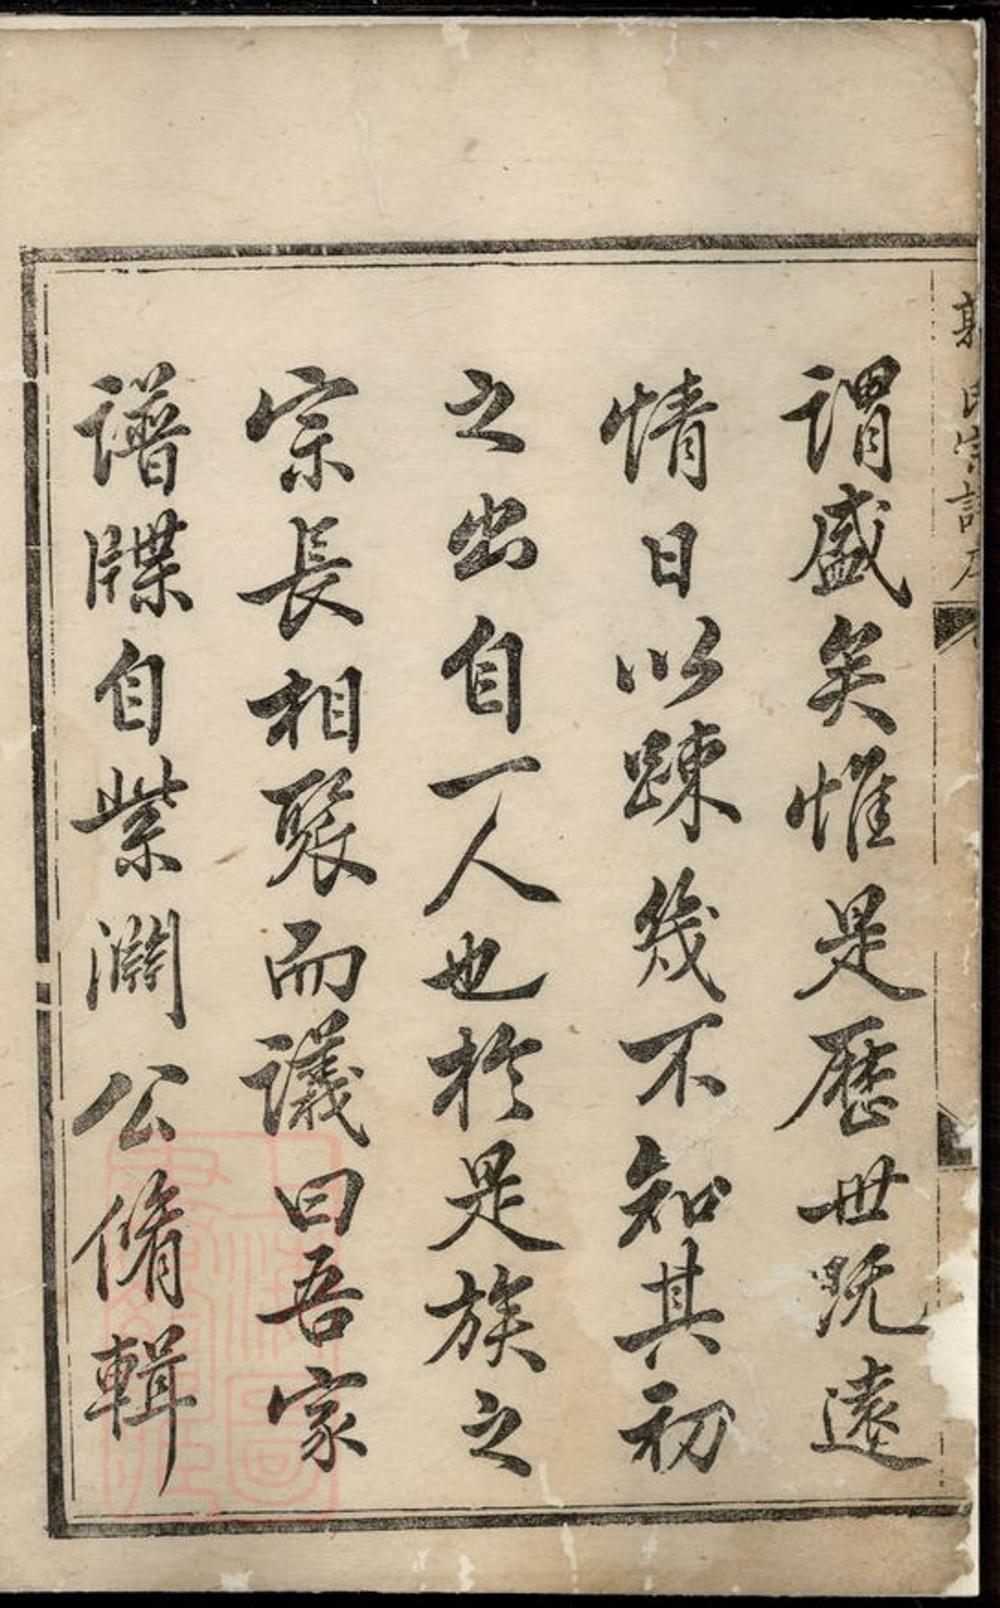 謂盛矣惟是歷世既遠
情日以踈幾不知其初
之出自一人也於是族之
宗長相聚而議曰吾家
譜牒自紫淵公脩輯